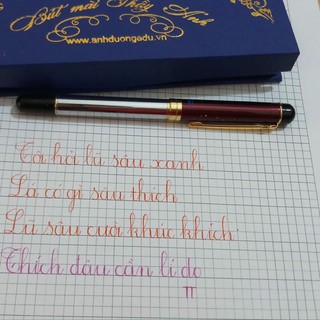 Bút mài Thầy Ánh
www.anhduongadu.vn
Tôi hỏi lũ sâu xanh
Lá có gì sâu thích
Lũ sâu cười khúc khích
Thích đâu cần lí do